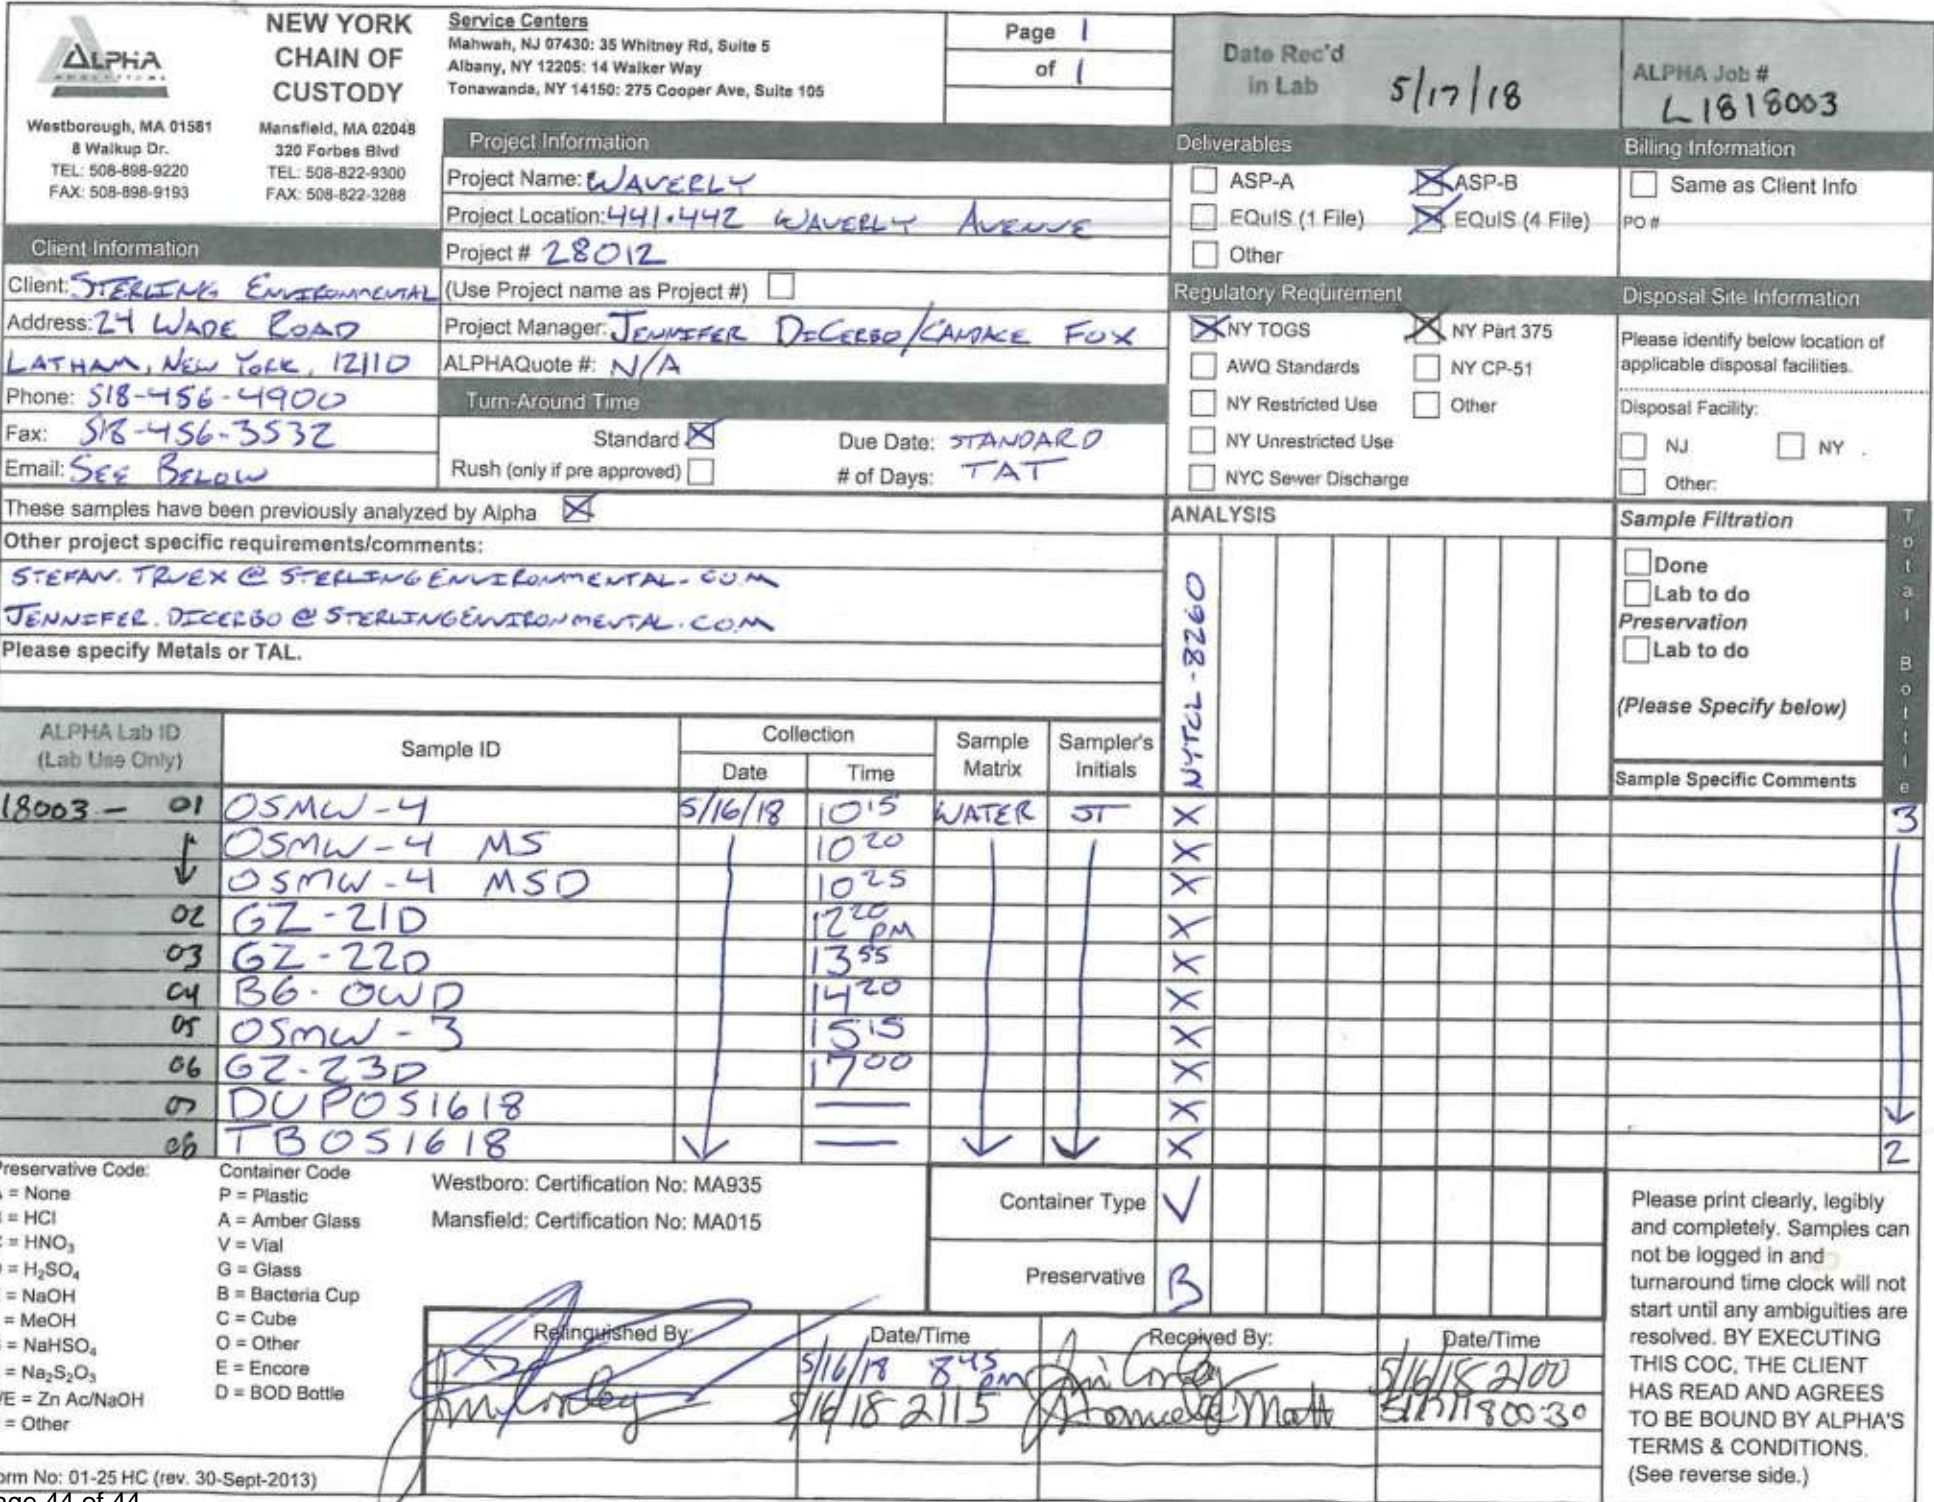 ALPHA
ANALYTICAL
Westborough, MA 01581
8 Walkup Dr.
TEL: 508-898-9220
FAX: 508-898-9193
NEW YORK
CHAIN OF
CUSTODY
Mansfield, MA 02048
320 Forbes Blvd
TEL: 508-822-9300
FAX: 508-822-3288
Service Centers
Mahwah, NJ 07430: 35 Whitney Rd, Suite 5
Albany, NY 12205: 14 Walker Way
Tonawanda, NY 14150: 275 Cooper Ave, Suite 105
Page 1
of 1
Date Rec'd
in Lab 5/17/18
ALPHA Job #
L1818003
Client Information
Client: STERLING ENVIRONMENTAL
Address: 24 WADE ROAD
LATHAM, NEW YORK, 12110
Phone: 518-456-4900
Fax: 518-456-3532
Email: SEE BELOW
Project Information
Project Name: WAVERLY
Project Location: 441-442 WAVERLY AVENUE
Project # 28012
(Use Project name as Project #)
Project Manager: JENNIFER DICERBO/CANDACE FOX
ALPHAQuote #: N/A
Turn-Around Time
Standard X Due Date: STANDARD
Rush (only if pre approved) # of Days: TAT
Deliverables
ASP-A X ASP-B
EQuIS (1 File) X EQuIS (4 File)
Other
Regulatory Requirement
X NY TOGS X NY Part 375
AWQ Standards NY CP-51
NY Restricted Use Other
NY Unrestricted Use
NYC Sewer Discharge
Billing Information
Same as Client Info
PO #
Disposal Site Information
Please identify below location of
applicable disposal facilities.
Disposal Facility:
NJ NY
Other:
These samples have been previously analyzed by Alpha X
Other project specific requirements/comments:
STEFAN.TRUEX@STERLINGENVIRONMENTAL.COM
JENNIFER.DICERBO@STERLINGENVIRONMENTAL.COM
Please specify Metals or TAL.
ANALYSIS
NYTCL-8260
Sample Filtration
Done
Lab to do
Preservation
Lab to do
(Please Specify below)
Total Bottle
ALPHA Lab ID
(Lab Use Only)
Sample ID
Collection
Date Time
Sample
Matrix
Sampler's
Initials
Sample Specific Comments
18003 - 01 OSMW-4 5/16/18 1015 WATER ST X 3
OSMW-4 MS 1020 X
OSMW-4 MSD 1025 X
02 GZ-21D 1220 PM X
03 GZ-22D 1355 X
04 B6-OWD 1420 X
05 OSMW-3 1515 X
06 GZ-23D 1700 X
07 DUP051618 — X
08 TB051618 — X 2
Preservative Code:
= None
= HCl
= HNO3
= H2SO4
= NaOH
= MeOH
= NaHSO4
= Na2S2O3
/E = Zn Ac/NaOH
= Other
Container Code
P = Plastic
A = Amber Glass
V = Vial
G = Glass
B = Bacteria Cup
C = Cube
O = Other
E = Encore
D = BOD Bottle
Westboro: Certification No: MA935
Mansfield: Certification No: MA015
Container Type V
Preservative B
Relinquished By: Date/Time Received By: Date/Time
5/16/18 845 PM 5/16/18 2100
5/16/18 2115 5/17/18 00:30
Please print clearly, legibly
and completely. Samples can
not be logged in and
turnaround time clock will not
start until any ambiguities are
resolved. BY EXECUTING
THIS COC, THE CLIENT
HAS READ AND AGREES
TO BE BOUND BY ALPHA'S
TERMS & CONDITIONS.
(See reverse side.)
orm No: 01-25 HC (rev. 30-Sept-2013)
age 44 of 44